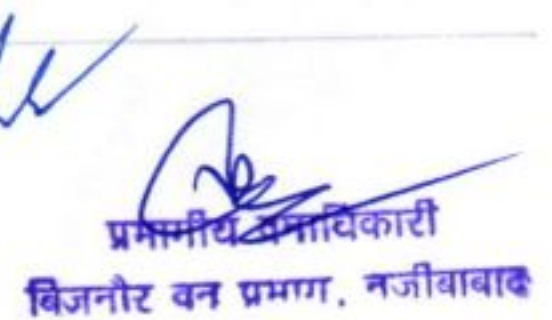 प्रभागीय वनाधिकारी
बिजनौर वन प्रभाग, नजीबाबाद